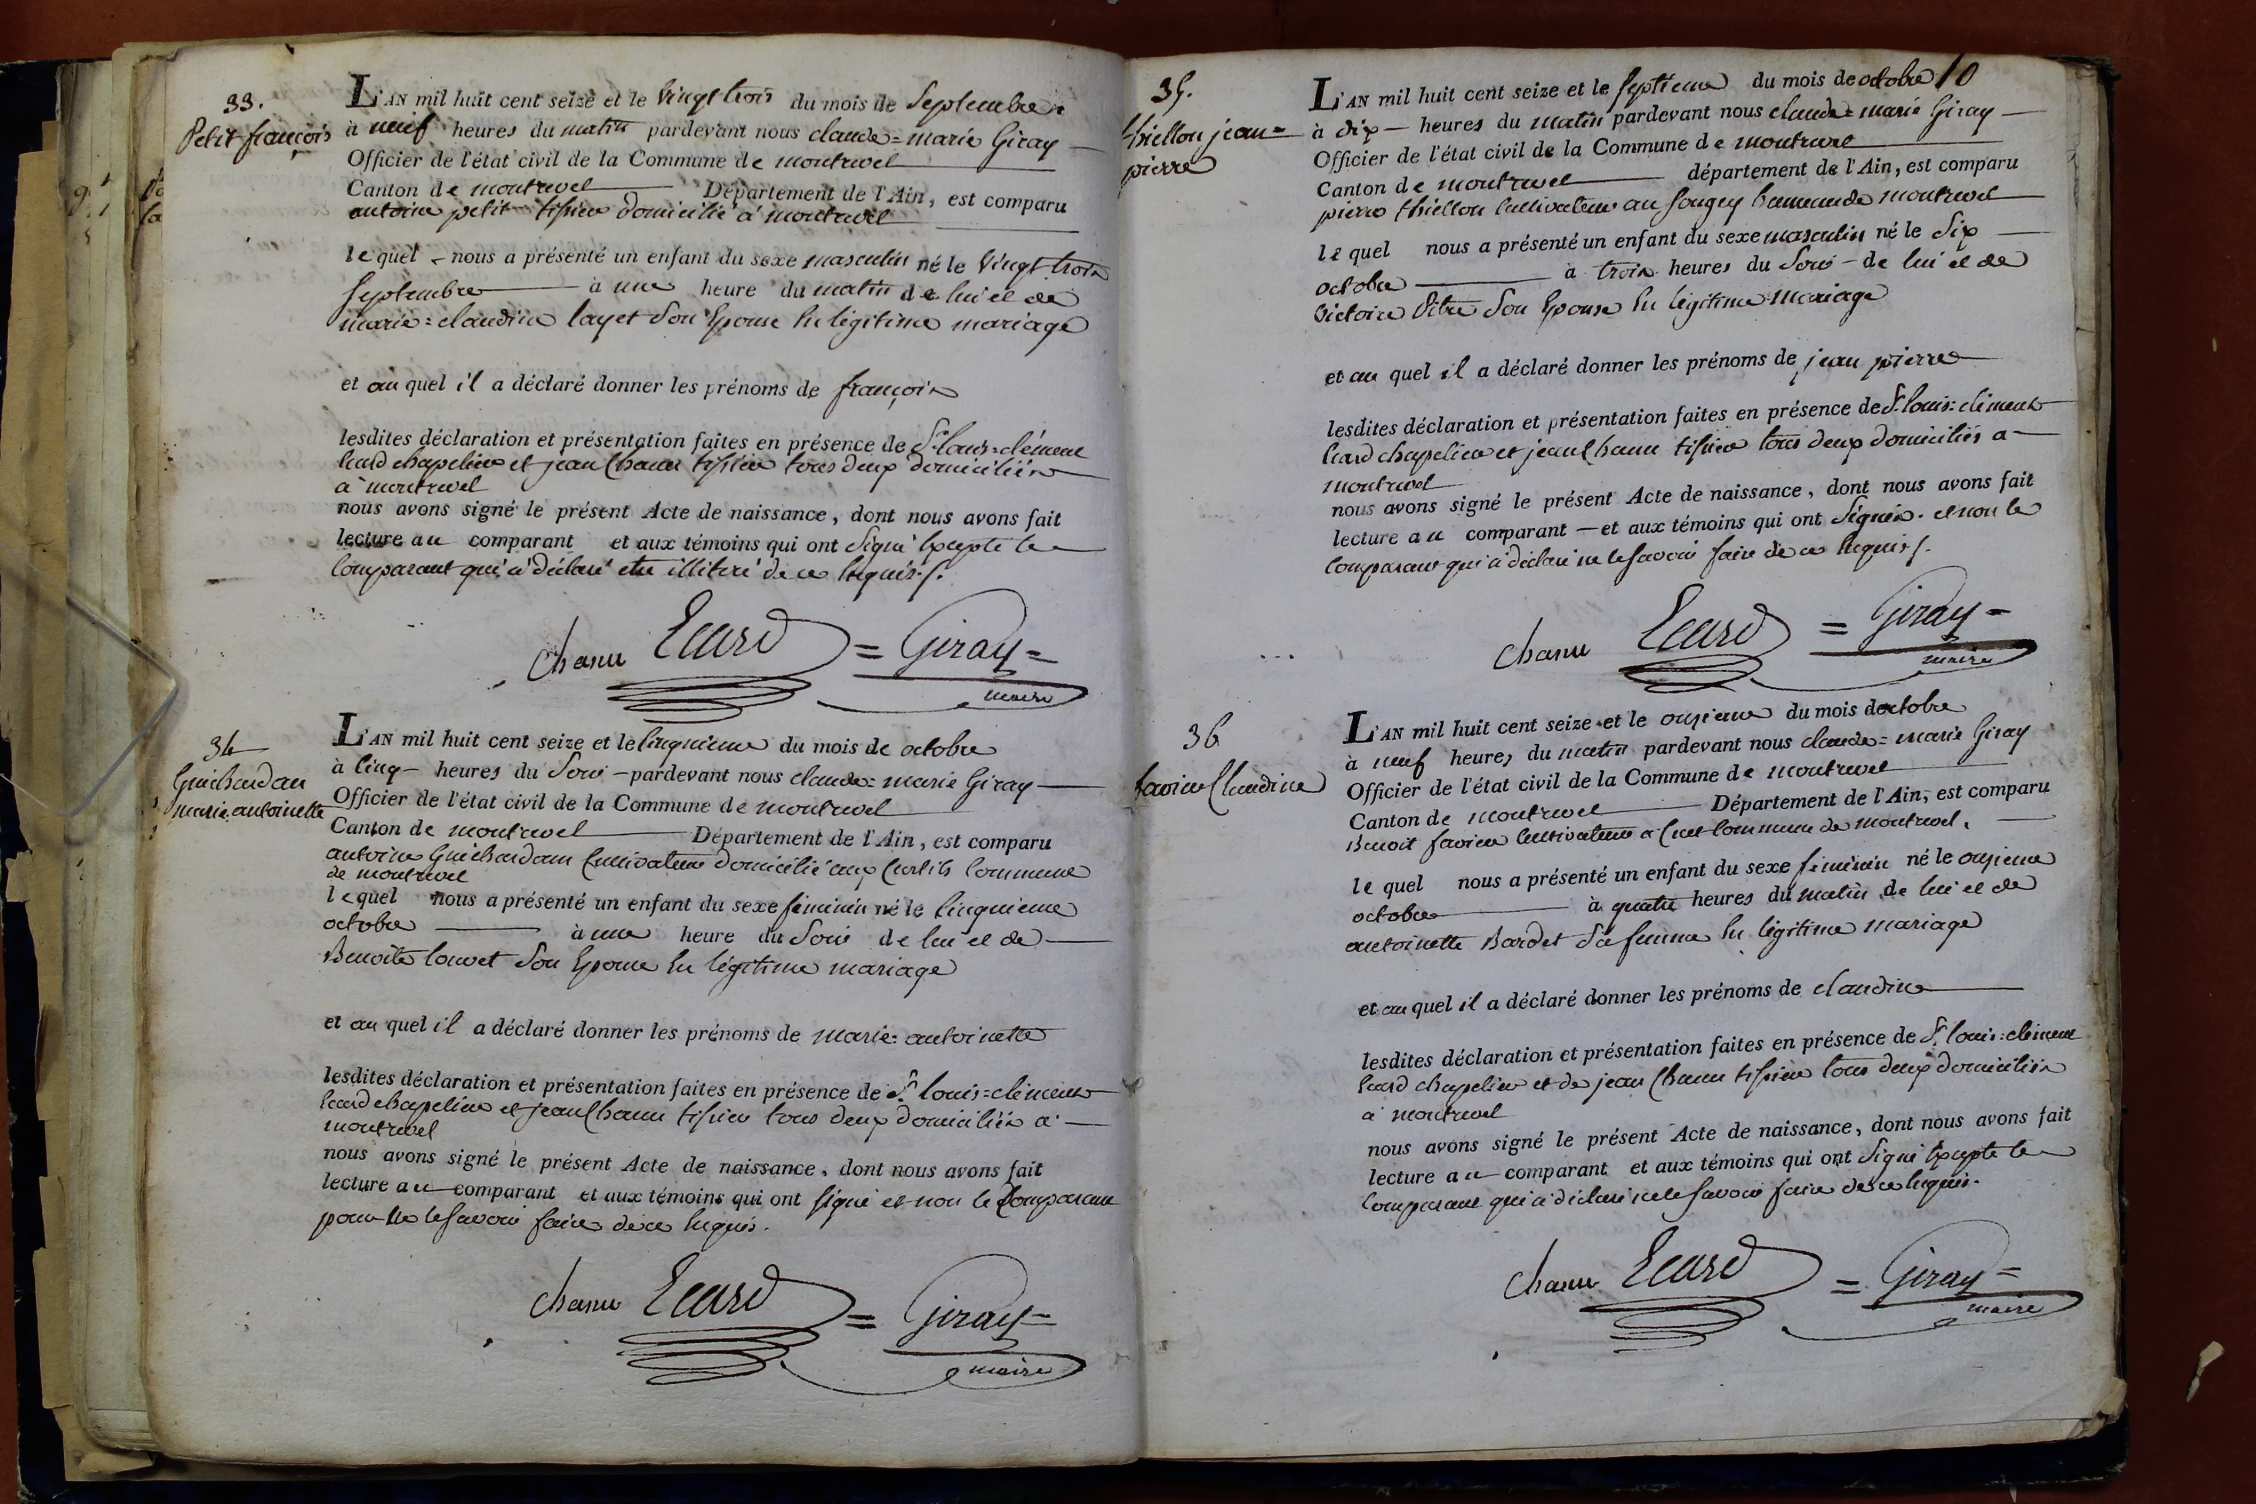 33.
Petit françois
L'AN mil huit cent seize et le vingt trois du mois de Septembre =
à neuf heures du matin pardevant nous claude = marie Giray
Officier de l'état civil de la Commune de montrevel
Canton de montrevel Département de l'Ain, est comparu
antoine petit tissier domicilié à montrevel
lequel nous a présenté un enfant du sexe masculin né le vingt trois
septembre à une heure du matin de lui et de
marie = claudine layet son Epouse En légitime mariage
et au quel il a déclaré donner les prénoms de françois
lesdites déclaration et présentation faites en présence de Sr. louis = clément
Ecard chapelier et jean Chanu tissier tous deux domiciliés
à montrevel
nous avons signé le présent Acte de naissance, dont nous avons fait
lecture au comparant et aux témoins qui ont signé Excepté le
Comparant qui a déclaré etre illitéré de ce Enquis./.
chanu Ecard = Giray =
maire
34
Guichardan
marie antoinette
L'AN mil huit cent seize et le cinquieme du mois de octobre
à cinq heures du Soir pardevant nous claude = marie Giray
Officier de l'état civil de la Commune de montrevel
Canton de montrevel Département de l'Ain, est comparu
antoine Guichardan Cultivateur domicilié aux Curtils Commune
de montrevel
lequel nous a présenté un enfant du sexe féminin né le cinquieme
octobre à une heure du Soir de lui et de
Benoite louvet Son Epouse En légitime mariage
et au quel il a déclaré donner les prénoms de marie = antoinette
lesdites déclaration et présentation faites en présence de Sr. louis = clément
Ecard chapelier et jean Chanu tissier tous deux domiciliés à
montrevel
nous avons signé le présent Acte de naissance, dont nous avons fait
lecture au comparant et aux témoins qui ont signé et non le Comparant
pour ne le savoir faire de ce Enquis.
chanu Ecard = Giray =
maire
10
35.
thiellon jean =
pierre
L'AN mil huit cent seize et le septieme du mois de octobre
à dix heures du matin pardevant nous claude = marie Giray
Officier de l'état civil de la Commune de montrevel
Canton de montrevel département de l'Ain, est comparu
pierre thiellon Cultivateur au Sougey hameau de montrevel
lequel nous a présenté un enfant du sexe masculin né le Six
octobre à trois heures du Soir de lui et de
victoire Pitre Son Epouse En légitime mariage
et au quel il a déclaré donner les prénoms de jean pierre
lesdites déclaration et présentation faites en présence de Sr. louis = clément
Ecard chapelier et jean Chanu tissier tous deux domiciliés à
montrevel
nous avons signé le présent Acte de naissance, dont nous avons fait
lecture au comparant et aux témoins qui ont signés. et non le
Comparant qui a déclaré ne le savoir faire de ce Enquis./.
chanu Ecard = Giray =
maire
36
favier Claudine
L'AN mil huit cent seize et le onzieme du mois de octobre
à neuf heures du matin pardevant nous claude = marie Giray
Officier de l'état civil de la Commune de montrevel
Canton de montrevel Département de l'Ain, est comparu
Benoit favier Cultivateur à Cuet Commune de montrevel.
lequel nous a présenté un enfant du sexe féminin né le onzieme
octobre à quatre heures du matin de lui et de
antoinette Bardet Sa femme En légitime mariage
et au quel il a déclaré donner les prénoms de claudine
lesdites déclaration et présentation faites en présence de Sr. louis = clément
Ecard chapelier et de jean Chanu tissier tous deux domiciliés
à montrevel
nous avons signé le présent Acte de naissance, dont nous avons fait
lecture au comparant et aux témoins qui ont signé Excepté le
Comparant qui a déclaré ne le savoir faire de ce Enquis.
chanu Ecard = Giray =
maire